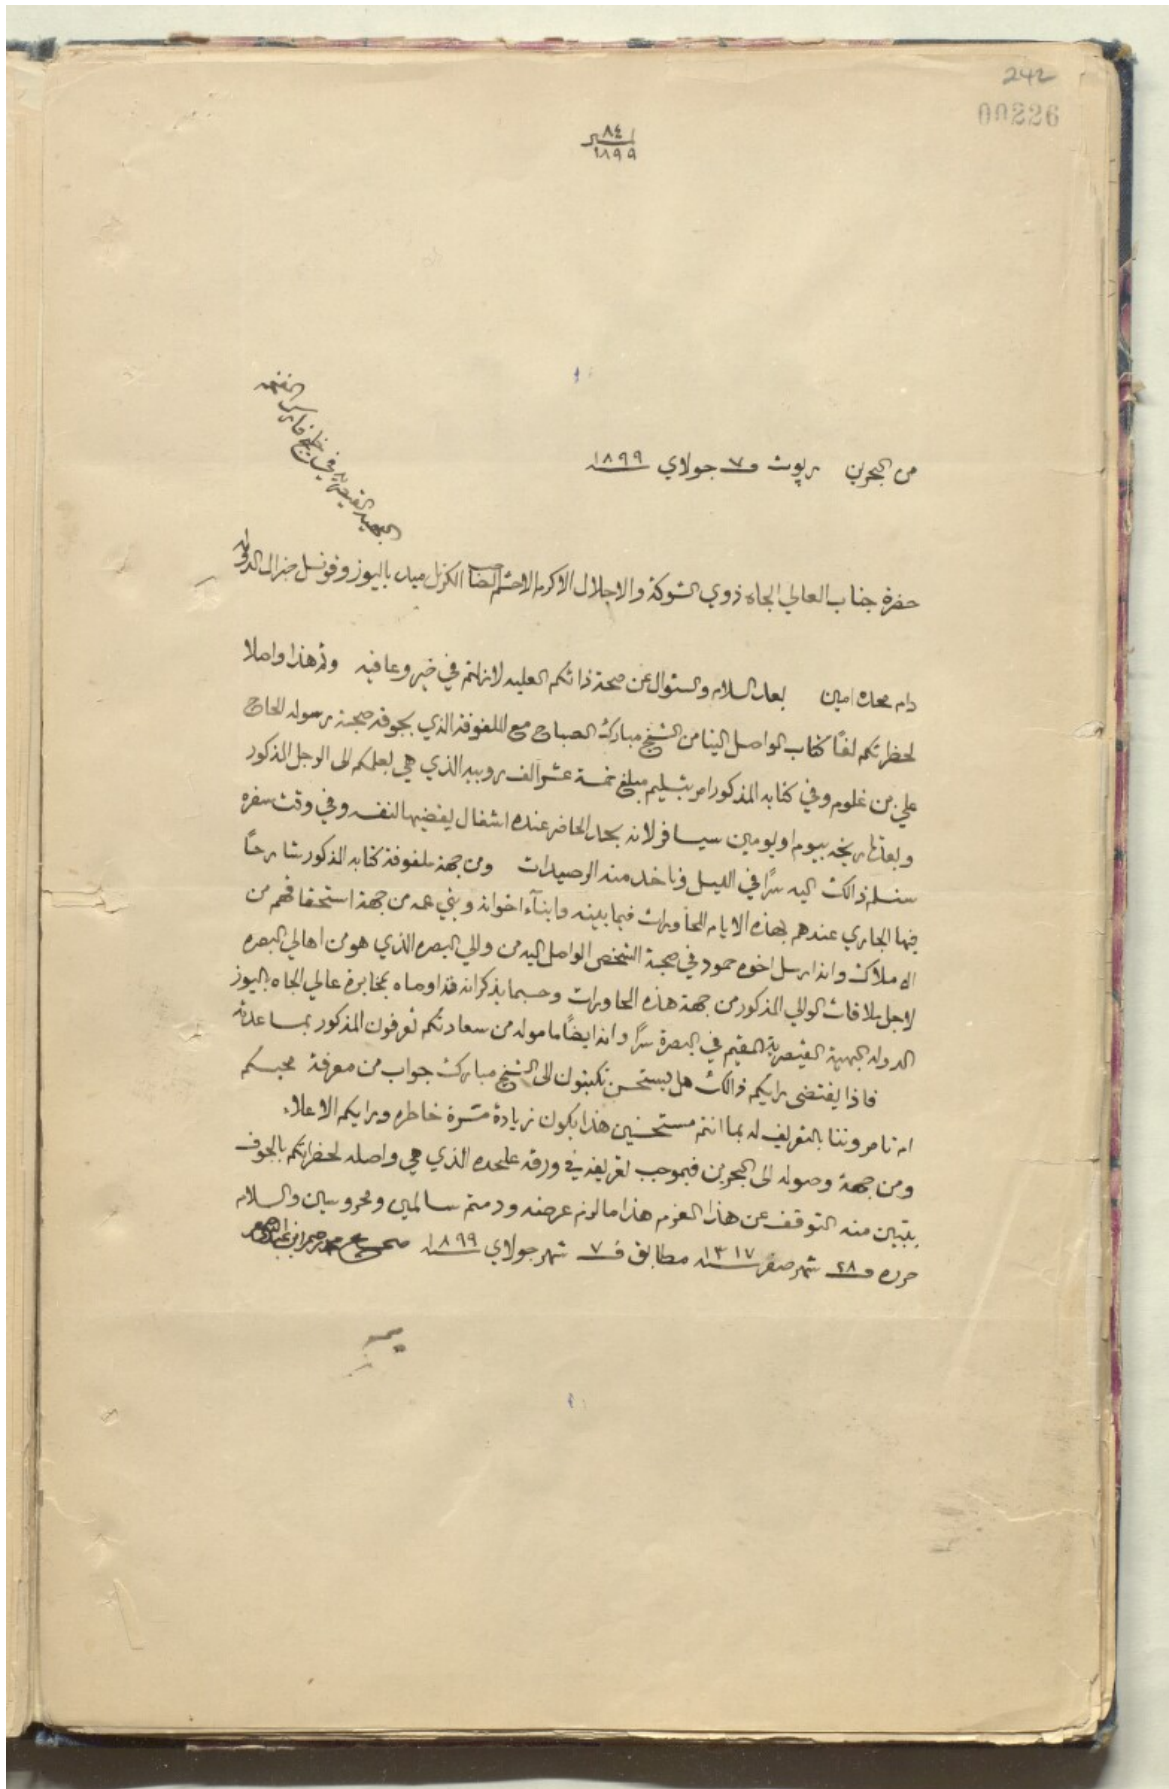 242
00226
نمبر ٨٤
١٨٩٩
من البحرين بريوت و ٧ جولاي سنه ١٨٩٩
حضرة جناب العالي الجاه ذوي الشوكة والاجلال الاكرم الاحشم الصاحب الكرنل ميد باليوز وقونسل جنرال الدولة
البهية القيصرية في خليج فارس
دام محده امين بعد السلام والسئوال عن صحة ذاتكم العليه لازلتم في خير وعافيه وثم هذا واصلا
لحظرتكم لفاً كتاب الواصل الينا من الشيخ مبارك الصباح مع الملفوفة الذي بجوفه صحبة رسوله الحاج
علي بن غلوم وفي كتابه المذكور امر بتسليم مبلغ خمسة عشر الف روبيه الذي هي بعلمكم الى الرجل المذكور
وبعد تاريخه بيوم او يومين سيسافر لانه بحد الحاضر عنده اشغال يقضيها لنفسه وفي وقت سفره
سنسلم ذالك اليه سراً في الليل وناخد منه الرصيدات ومن جهة ملفوفة كتابه المذكور شارحاً
فيها الجاري عندهم بهذه الايام المحاورات فيما بينه وابنآء اخوانه وبني عمه من جهة استحقاقهم من
الاملاك وانه ارسل اخوه حمود في صحبة الشخص الواصل اليه من والي البصره الذي هو من اهالي البصره
لاجل ملاقات الوالي المذكور من جهة هذه المحاورات وحسبما يذكر انه قد اوصاه بمخابرة عالي الجاه باليوز
الدوله البهية القيصرية المقيم في البصرة سراً وانه ايضاً ماموله من سعادتكم تعرفون المذكور بمساعدته
فاذا يقتضى برايكم ذالك هل يستحسن تكتبون الى الشيخ مبارك جواب من معرفة محبكم
ام تامروننا بالتعريف له بما انتم مستحسنين هذا يكون زيادة مسرة خاطره وبرايكم الاعلاء
ومن جهة وصوله الى البحرين فبموجب تعريفه في ورقة عليحده الذي هي واصله لحظراتكم بالجوف
يتبين منه التوقف عن هذا العزم هذا مالزم عرضه ودمتم سالمين ومحروسين والسلام
حرره و ٢٨ شهر صفر سنه ١٣١٧ مطابق ف ٧ شهر جولاي سنه ١٨٩٩ صحيح محمد رحيم ابن عبد النبي صفر